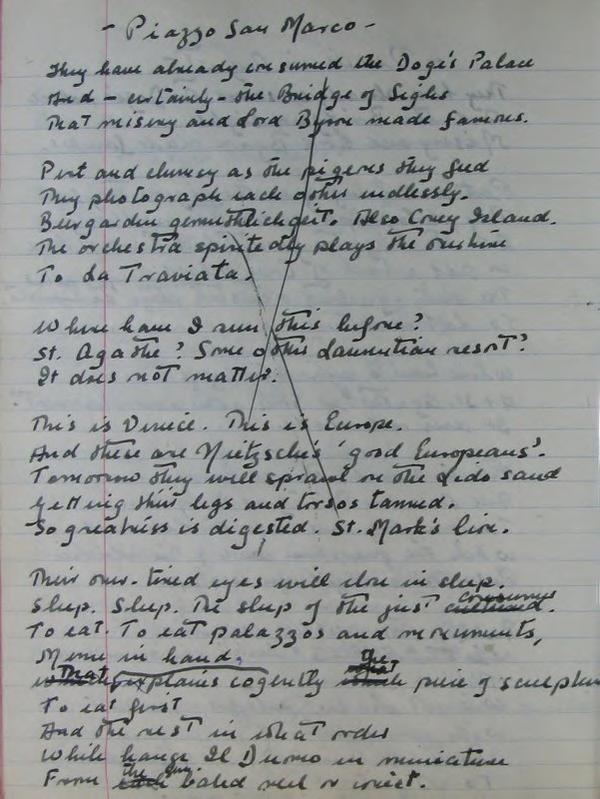 - Piazzo San Marco -
They have already consumed the Doge's Palace
And - certainly - the Bridge of Sighs
That misery and Lord Byron made famous.
Pert and clumsy as the pigeons they feed
They photograph each other endlessly.
Biergarden gemuthlichgeit. Also Coney Island.
The orchestra spiritedly plays the overture
To La Traviata.
Where have I seen this before?
St. Agathe? Some other Laurentian resort?
It does not matter.
This is Venice. This is Europe.
And these are Nietzsche's 'good Europeans'.
Tomorrow they will sprawl on the Lido sand
Getting their legs and torsos tanned.
So greatness is digested. St. Mark's lion.
Their over-tired eyes will close in sleep.
Sleep. Sleep. The sleep of the just cultured consumer.
To eat. To eat palazzos and monuments,
Menu in hand,
That explains cogently the piece of sculpture
To eat first
And the rest in what order
While hangs Il Duomo in miniature
From the baked